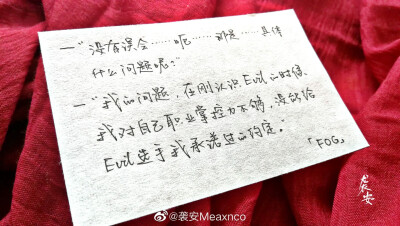 一"没有误会……呃……那是……具体
什么问题呢。"
一"我的问题,在刚认识Evil的时候,
我对自己职业掌控力不够,没能给
Evil选手我承诺过的约定。"
「FOG」
袭安
@袭安Meaxnco